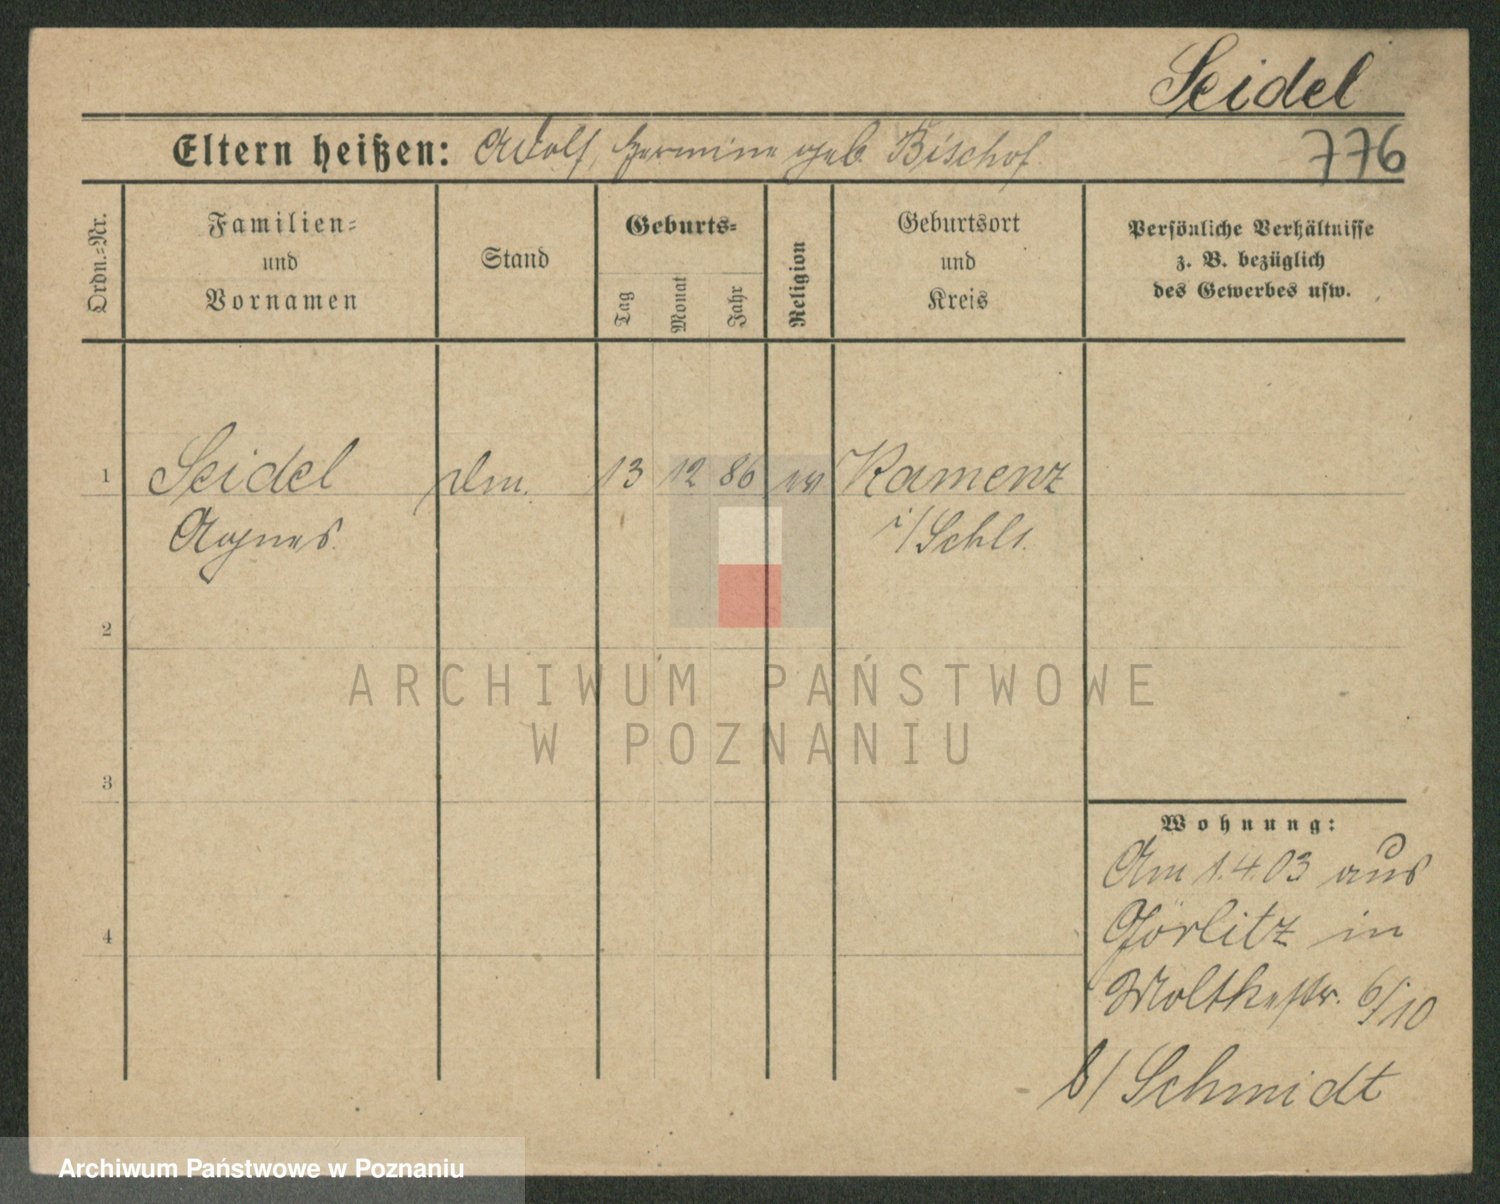 Seidel
Eltern heißen: Adolf, Hermine geb. Bischof.
776
Ordn.-Nr.
Familien-
und
Vornamen
Stand
Geburts-
Tag
Monat
Jahr
Religion
Geburtsort
und
Kreis
Persönliche Verhältnisse
z. B. bezüglich
des Gewerbes usw.
1 Seidel 13 12 86 ev Kamenz
Agnes. i/Schls.
2
3
4
Wohnung:
Am 1.4.03 aus
Görlitz in
Moltkestr. 6/10
b/ Schmidt
ARCHIWUM PAŃSTWOWE
W POZNANIU
Archiwum Państwowe w Poznaniu